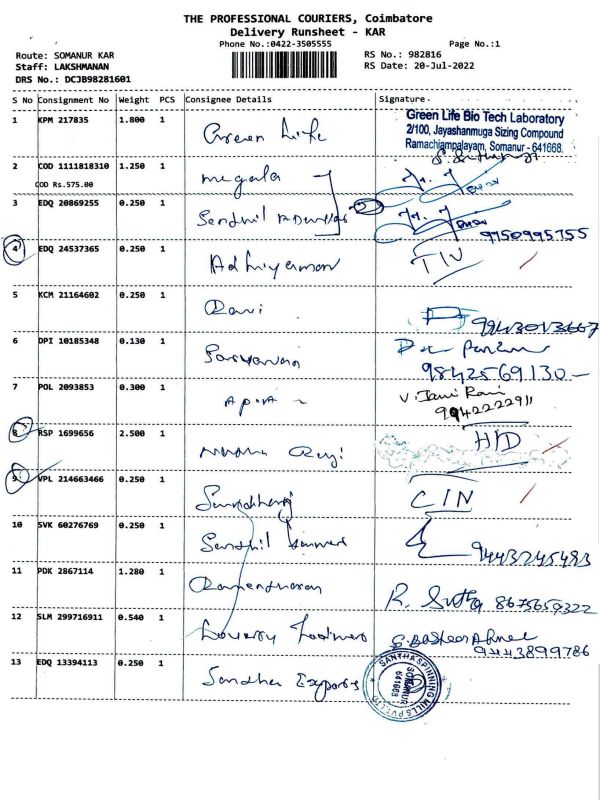 THE PROFESSIONAL COURIERS, Coimbatore
Delivery Runsheet - KAR
Phone No.:0422-3505555 Page No.:1
Route: SOMANUR KAR RS No.: 982816
Staff: LAKSHMANAN RS Date: 20-Jul-2022
DRS No.: DCJB98281601
S No Consignment No Weight PCS Consignee Details Signature
1 KPM 217835 1.800 1 Green Life
Green Life Bio Tech Laboratory
2/100, Jayashanmuga Sizing Compound
Ramachiampalayam, Somanur - 641668.
2 COD 1111818310 1.250 1 megala
COD Rs.575.00
3 EDQ 20869255 0.250 1 Senthil
9750995755
4 EDQ 24537365 0.250 1 Adhiyaman
5 KCM 21164602 0.250 1 Ravi
6 DPI 10185348 0.130 1
9842569130
7 POL 2093853 0.300 1 V. Jani Rani
9942222911
8 RSP 1699656 2.500 1 H/D
9 VPL 214663466 0.250 1 CIN
10 SVK 60276769 0.250 1 Senthil Kumar 9443245493
11 PDK 2867114 1.280 1 R. Sutha 8675659322
12 SLM 299716911 0.540 1 S. Basheer Ahmed
9443899786
13 EDQ 13394113 0.250 1 Santha Exports
SANTHA SPINNING MILLS PVT LTD
SOMANUR
641668